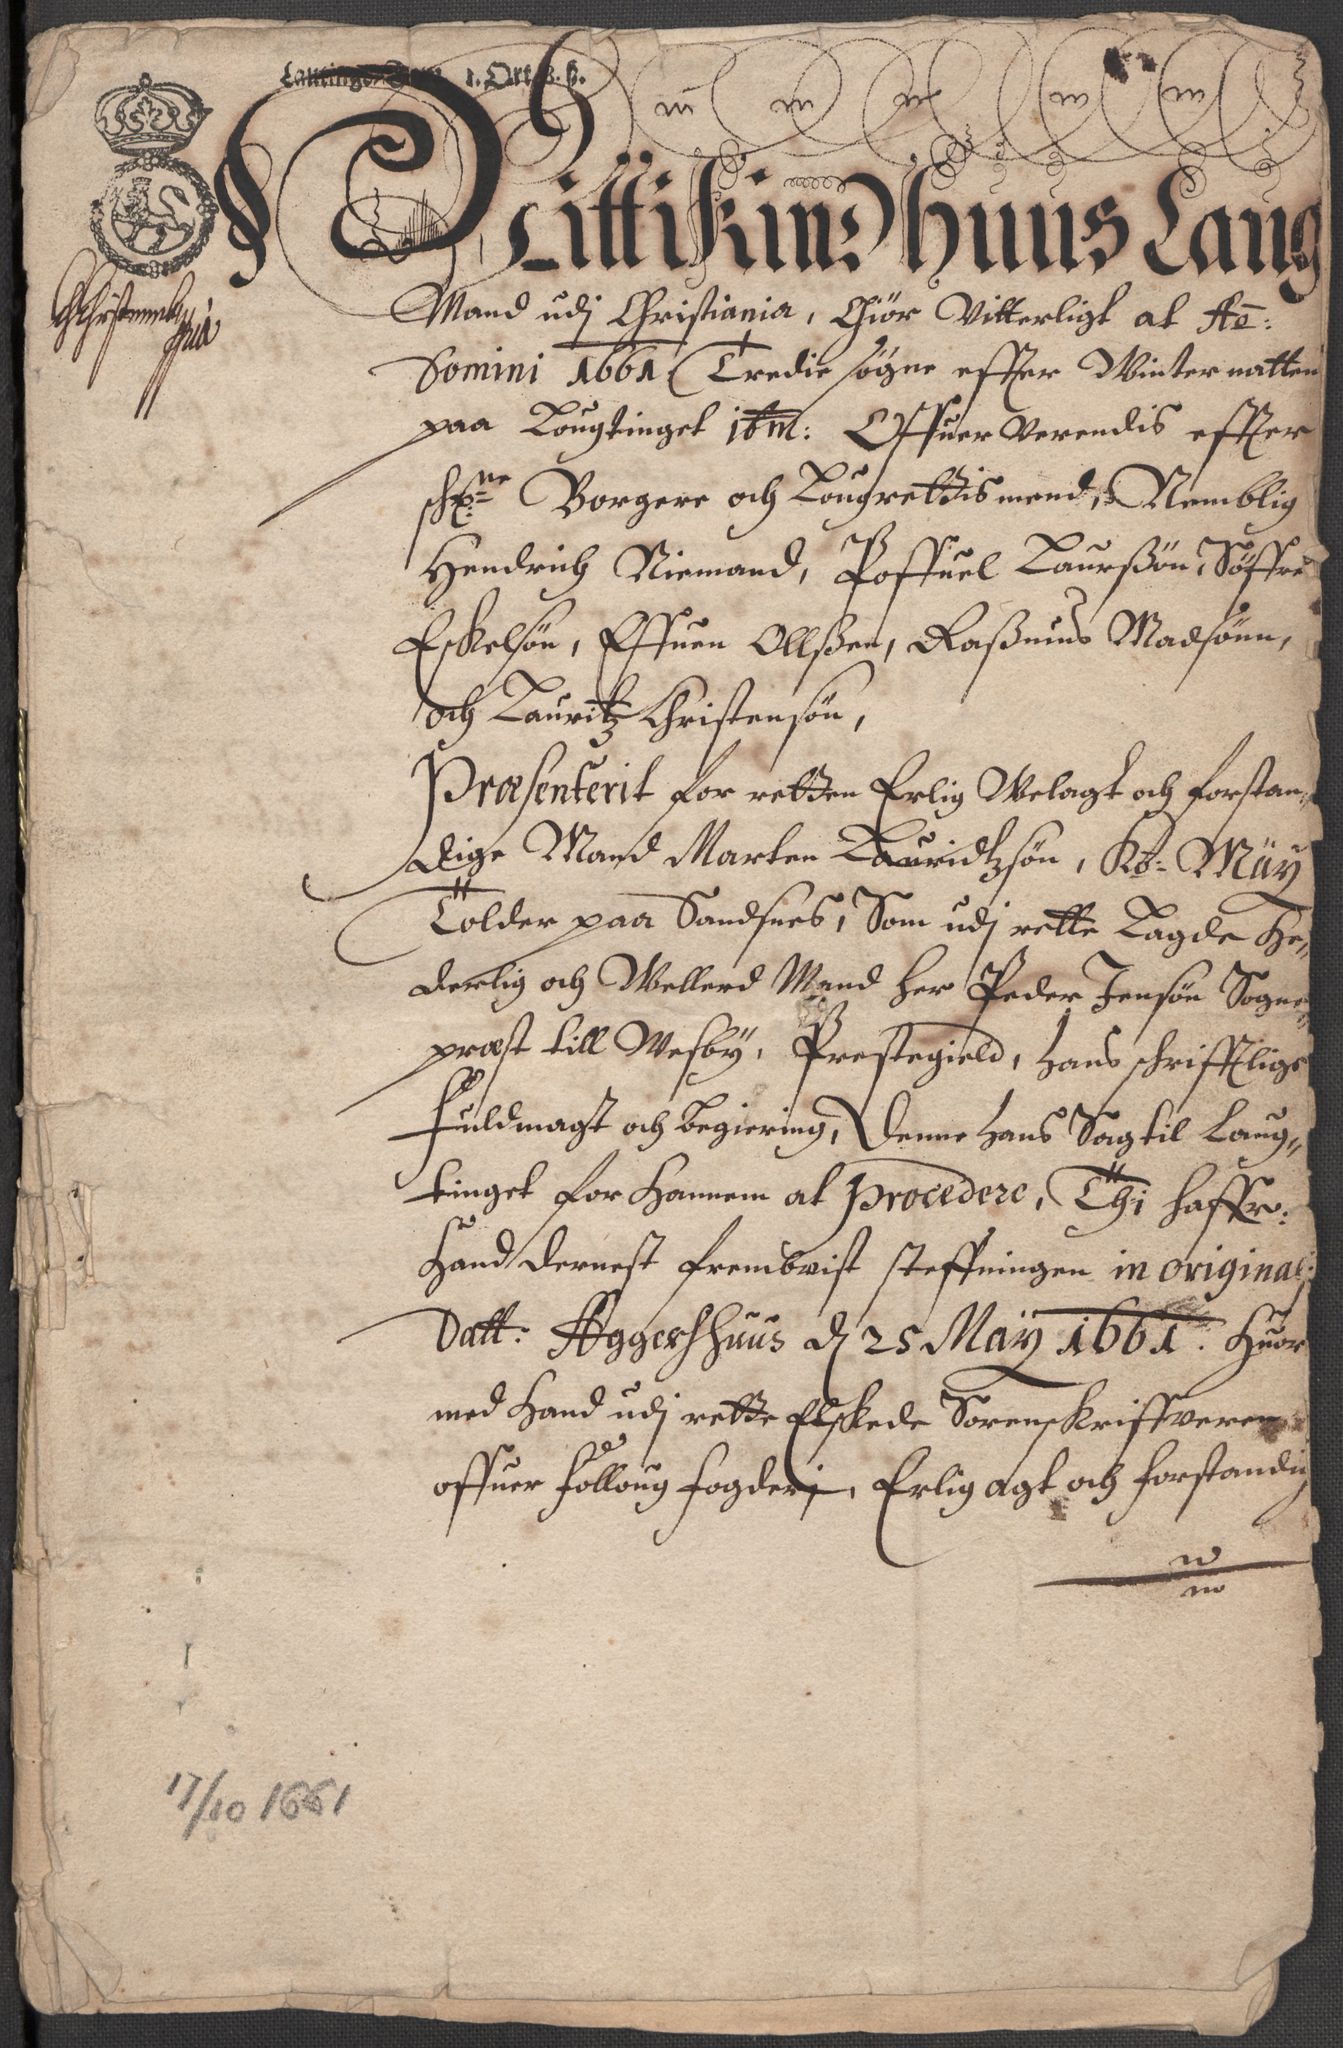 1. Ort. 8. ß.
Wittikind Huus Laug
Mand udj Christiania, Giör Vitterligt at Ao:
Domini 1661 Tredie søgne effter Winternatten
paa Lougtinget ibm: Offuer Verendis effter
schr:ne Borgere och Lougrettismend, Nemblig
Hendrich Niemand, Poffuel Laurßön, Söffre
Eskelsön, Effuen Ollßen, Raßmus Madsönn,
och Lauritz Christensön,
Præsenterit for retten Erlig Velagt och forstan„
dige Mand Marten Lauridtzsön, Ko: Mäy
Tolder paa Sandsnes, Som udj rette Lagde He„
derlig och Wellerd Mand her Peder Jensön Sogne„
præst till Wesby, Prestegield, hans schrifftlige
Fuldmagt och begiering, Denne hans Sag til Laug„
tinget for hannem at Procedere, Thi haffr:
Hand dernest frembvist steffningen in original:
Datt: Aggershuus d 25 Mäy 1661. Huor
med Hand udj rette Eskede Sorenskriffveren
offuer Folloug fogderj, Erlig agt och forstandig
17/10 1661